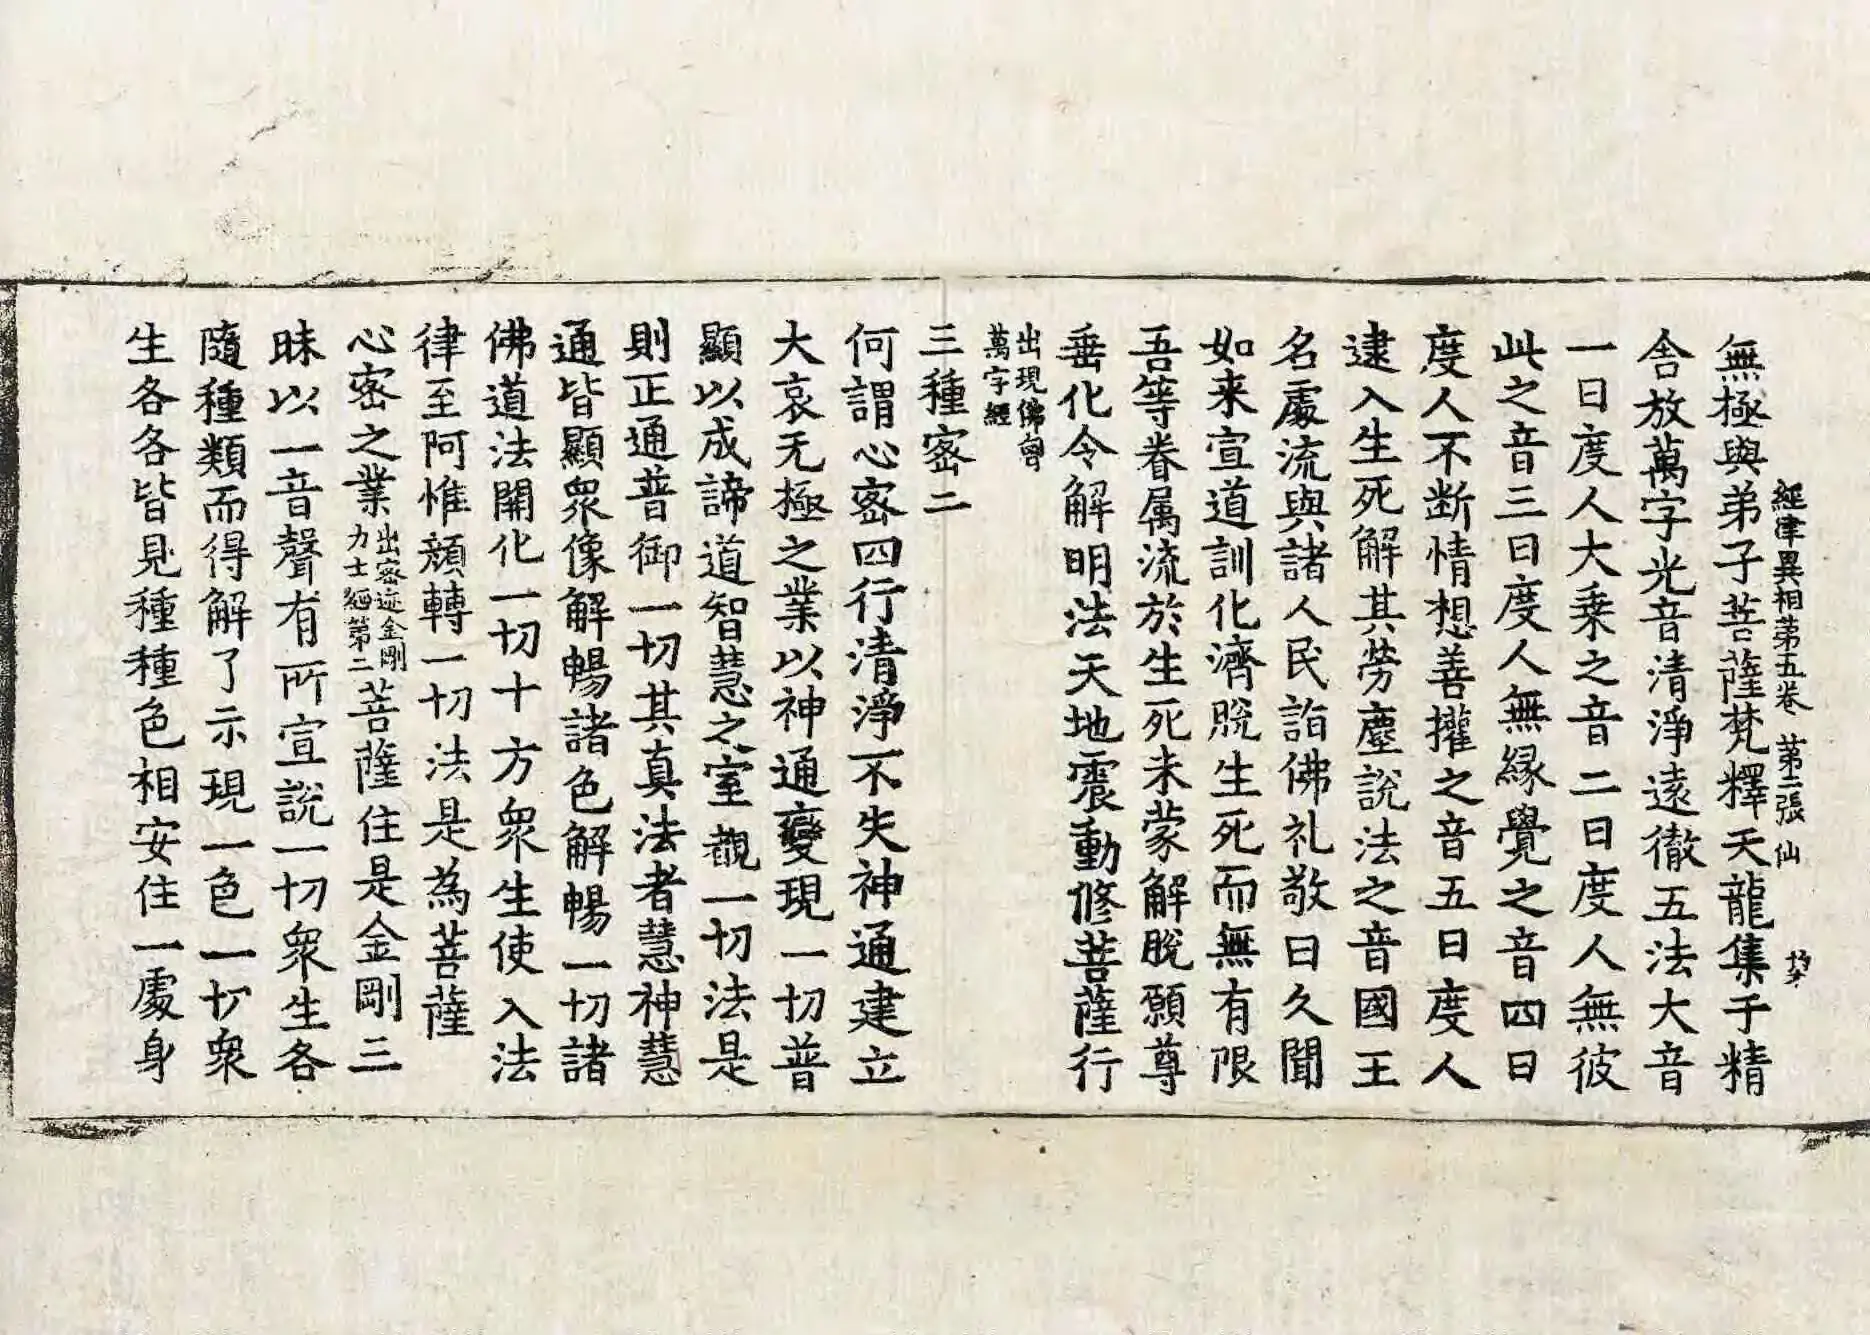 經律異相苐五卷 苐二張 仙
無極與弟子菩薩梵釋天龍集于精
舍放萬字光音清淨遠徹五法大音
一曰度人大乗之音二曰度人無彼
此之音三曰度人無縁覺之音四曰
度人不断情想善攉之音五曰度人
逮入生死解其勞塵說法之音國王
名處流與諸人民詣佛礼敬曰久聞
如来宣道訓化濟脫生死而無有限
吾等眷属流於生死未蒙解脫願尊
垂化令解明法天地震動修菩薩行
出現佛會
萬字經
三種密二
何謂心密四行清淨不失神通建立
大哀无極之業以神通變現一切普
顯以成諦道智慧之室觀一切法是
則正通普御一切其真法者慧神慧
通皆顯眾像解暢諸色解暢一切諸
佛道法開化一切十方眾生使入法
律至阿惟顔轉一切法是為菩薩
心密之業出密迹金剛力士經第二菩薩住是金剛三
昧以一音聲有所宣說一切眾生各
隨種類而得解了示現一色一切衆
生各各皆見種種色相安住一處身